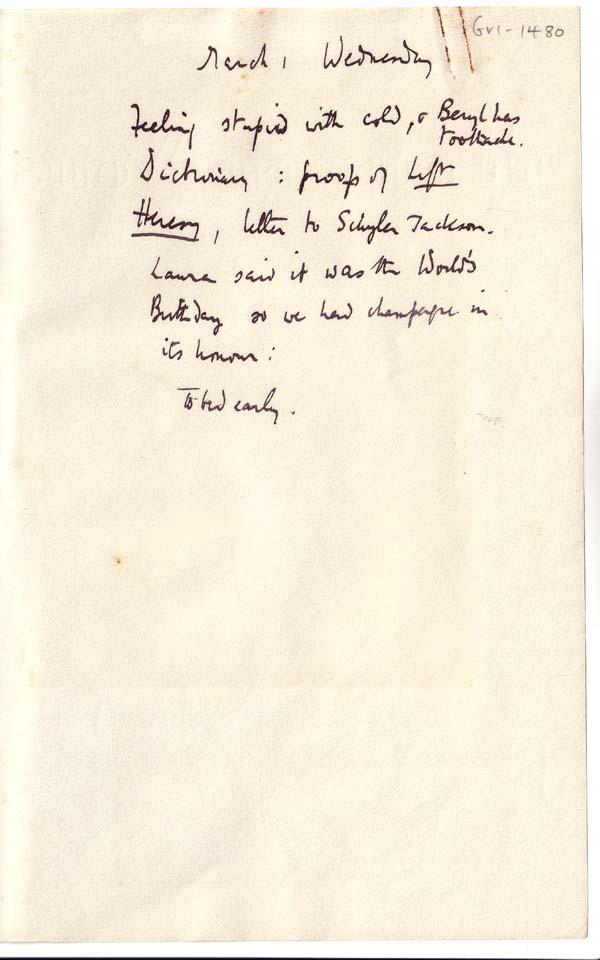 GV1-1480
March 1 Wednesday
Feeling stupid with cold, & Beryl has
toothache.
Dictionary : proofs of Left
Heresy, letter to Schuyler Jackson.
Laura said it was the World's
Birthday so we had champagne in
its honour :
To bed early.